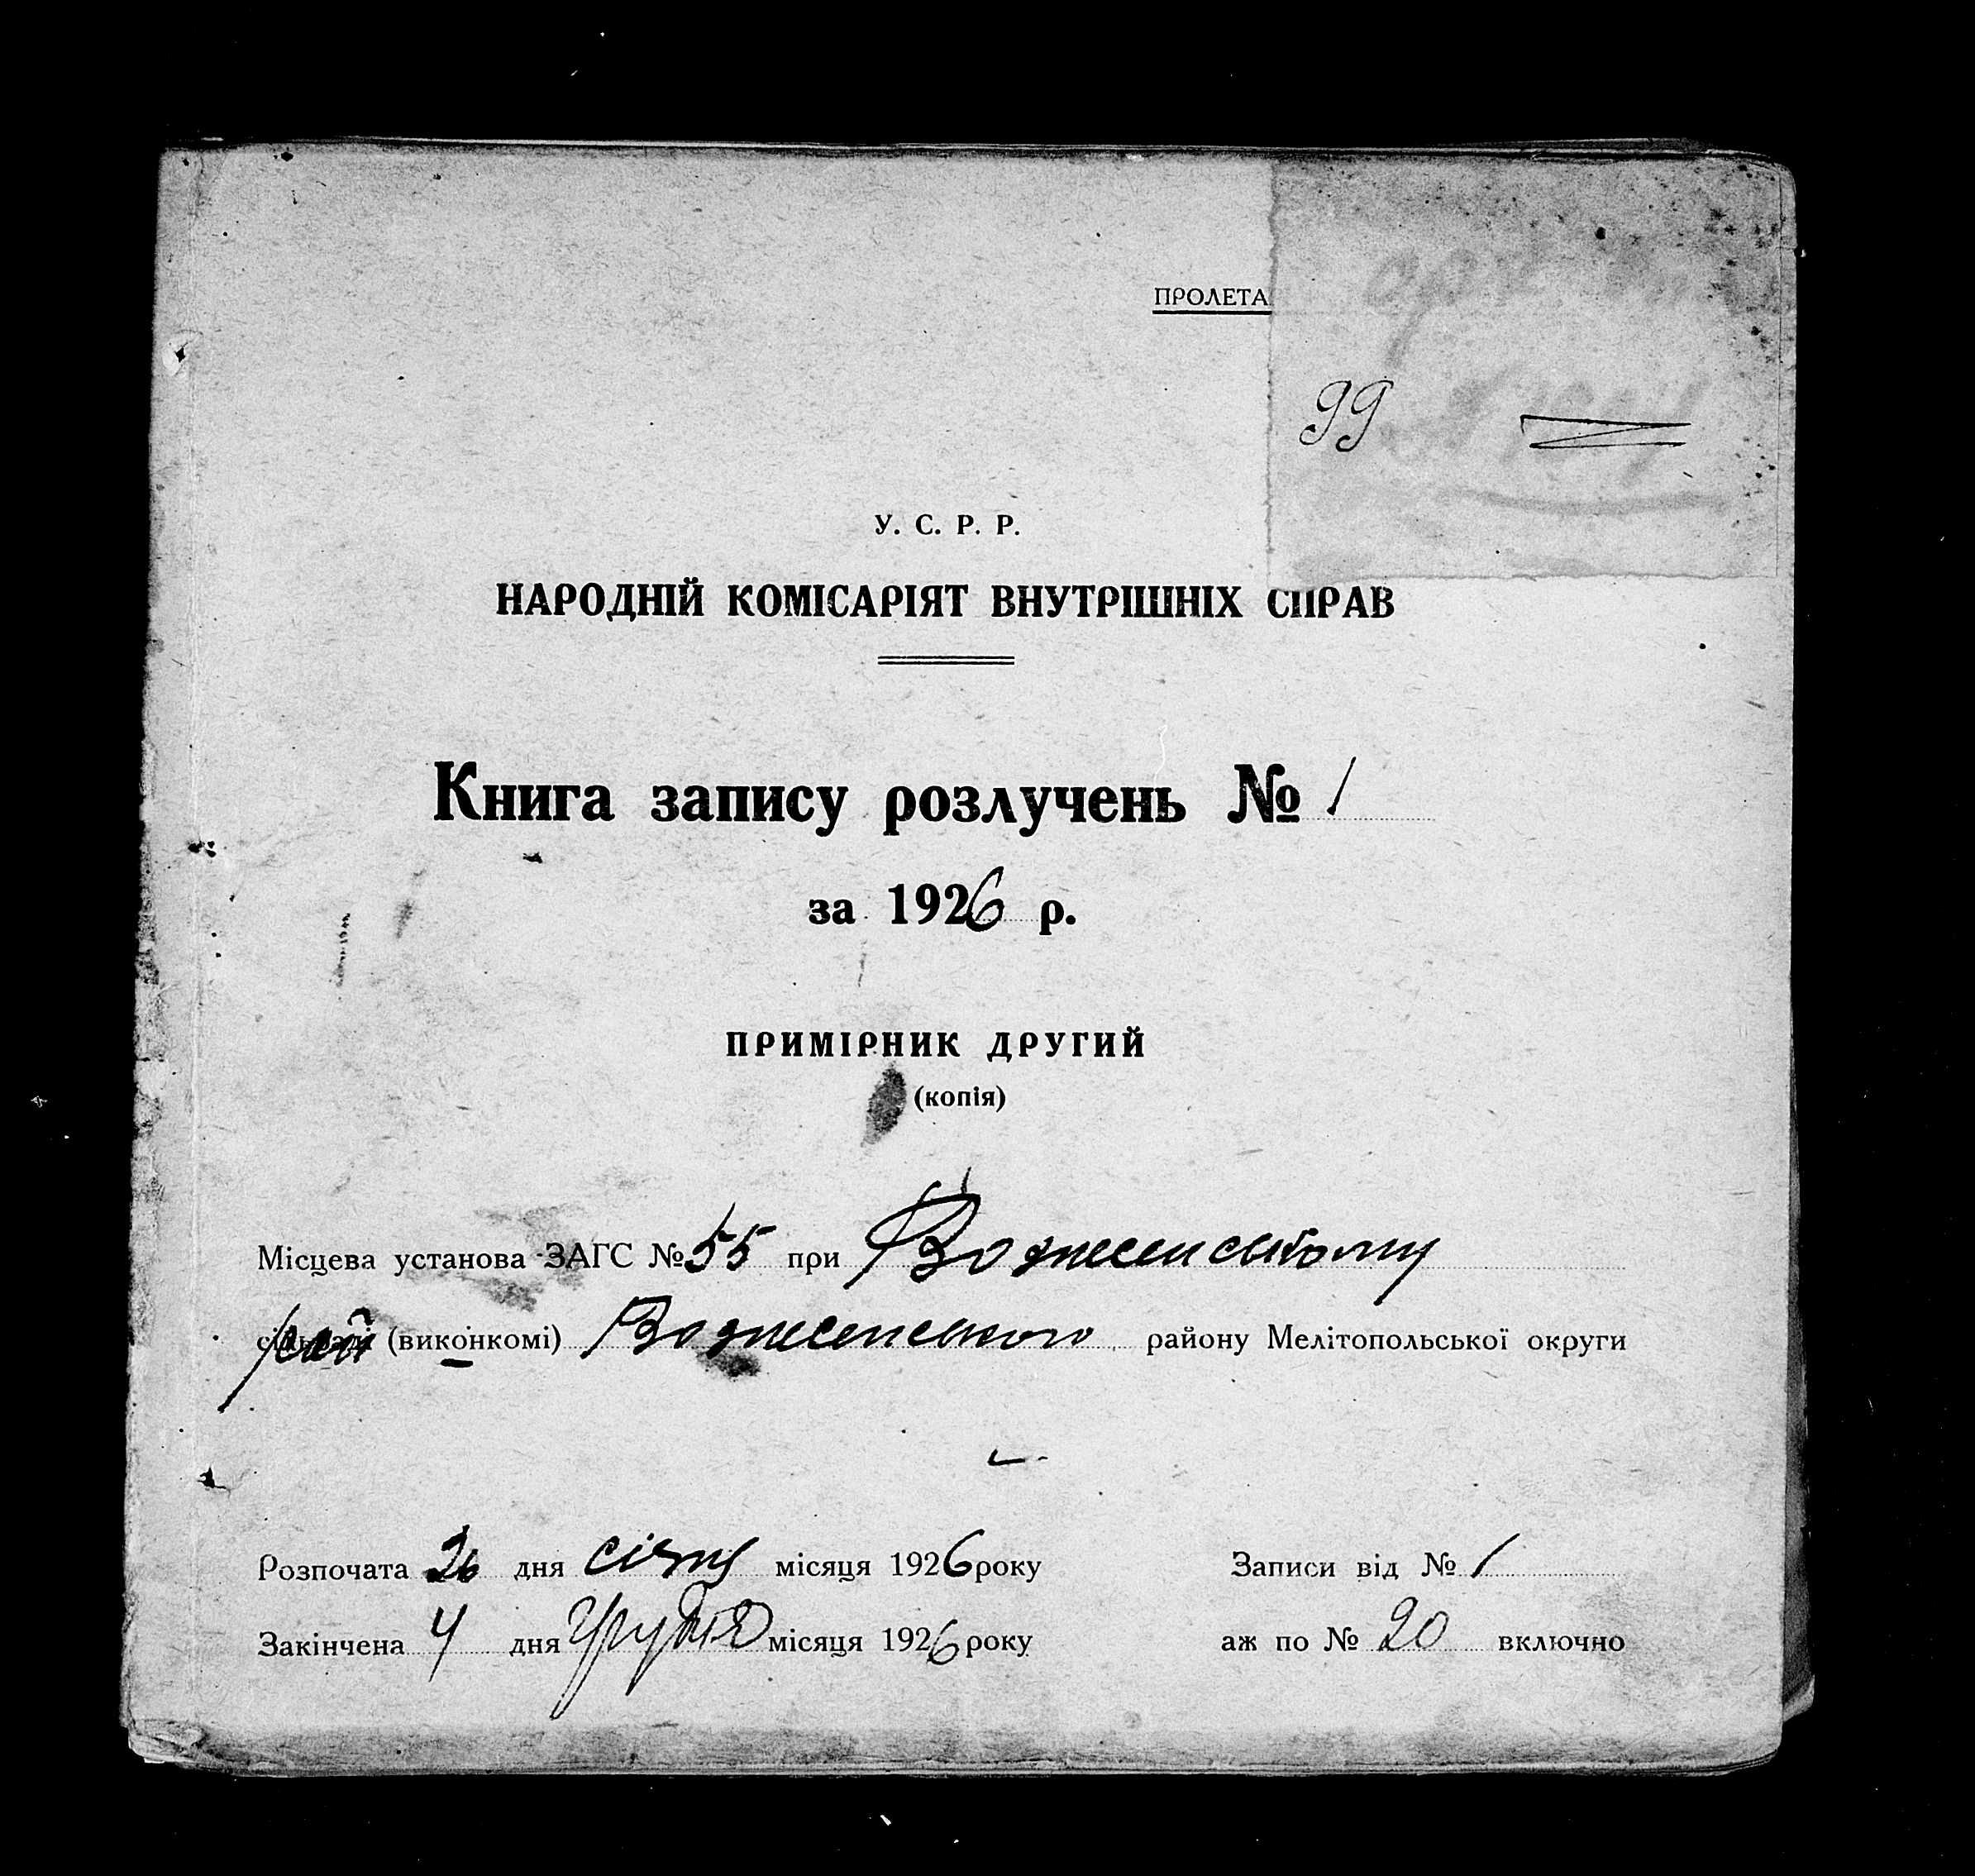 ПРОЛЕТА
99
У. С. Р. Р.
НАРОДНІЙ КОМІСАРІЯТ ВНУТРІШНІХ СПРАВ
Книга запису розлучень № 1
за 1926 р.
ПРИМІРНИК ДРУГИЙ
(копія)
Місцева установа ЗАГС № 55 при Вознесенському
рай (виконкомі) Вознесенського району Мелітопольської округи
Розпочата 26 дня січня місяця 1926 року Записи від № 1
Закінчена 4 дня грудня місяця 1926 року аж по № 20 включно